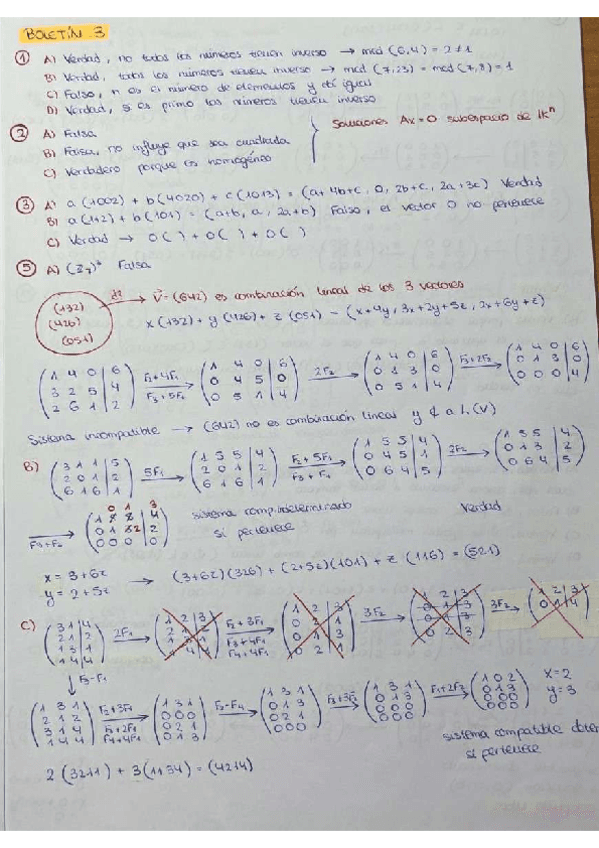 BOLETÍN 3
① A) Verdad, no todos los números tienen inverso → mcd (6,4) = 2 ≠ 1
B) Verdad, todos los números tienen inverso → mcd (7,23) = mcd (7,8) = 1
C) Falso, n es el número de elementos y da igual
D) Verdad, si es primo los números tienen inverso
② A) Falsa
B) Falsa, no influye que sea cuadrada
C) Verdadero porque es homogéneo
Soluciones Ax=0 subespacio de Kⁿ
③ A) a (1002) + b (4020) + c (1013) = (a+4b+c, 0, 2b+c, 2a+3c) Verdad
B) a (112) + b (101) = (a+b, a, 2a+b) Falso, el vector 0 no pertenece
C) Verdad → 0 ( ) + 0 ( ) + 0 ( )
⑤ A) (Z₇)³ Falsa
(132)
(426)
(051)
→ V = (642) es combinación lineal de los 3 vectores
x (132) + y (426) + z (051) = (x+4y, 3x+2y+5z, 2x+6y+z)
1 4 0 | 6
3 2 5 | 4
2 6 1 | 2
F₂+4F₁
F₃+5F₁
1 4 0 | 6
0 4 5 | 0
0 5 1 | 4
2F₂
1 4 0 | 6
0 1 3 | 0
0 5 1 | 4
F₃+2F₂
1 4 0 | 6
0 1 3 | 0
0 0 0 | 4
Sistema incompatible → (642) no es combinación lineal y ∉ a L(V)
B)
3 1 1 | 5
2 0 1 | 2
6 1 6 | 1
5F₁
1 5 5 | 4
2 0 1 | 2
6 1 6 | 1
F₂ + 5F₁
F₃ + F₁
1 5 5 | 4
0 4 5 | 1
0 6 4 | 5
2F₂
1 5 5 | 4
0 1 3 | 2
0 6 4 | 5
F₃+F₂
0 0 0 | 0
sistema comp. indeterminado
si pertenece
Verdad
x = 3+6z
y = 2+5z
→ (3+6z)(326) + (2+5z)(101) + z (116) = (521)
C)
3 1 | 4
2 1 | 2
1 3 | 1
1 4 | 4
2F₁
F₂+3F₁
F₃+4F₁
F₄+4F₁
3F₂
3F₂
↓ F₃-F₁
1 3 | 1
2 1 | 2
3 1 | 4
1 4 | 4
F₃+2F₁
F₄+4F₁
1 3 | 1
0 0 | 0
0 2 | 1
0 1 | 3
F₂-F₄
1 3 | 1
0 1 | 3
0 2 | 1
0 0 | 0
1 3 | 1
0 1 | 3
0 0 | 0
0 0 | 0
1 0 | 2
0 1 | 3
0 0 | 0
0 0 | 0
x=2
y=3
sistema compatible deter
si pertenece
2 (3211) + 3 (1134) = (4214)